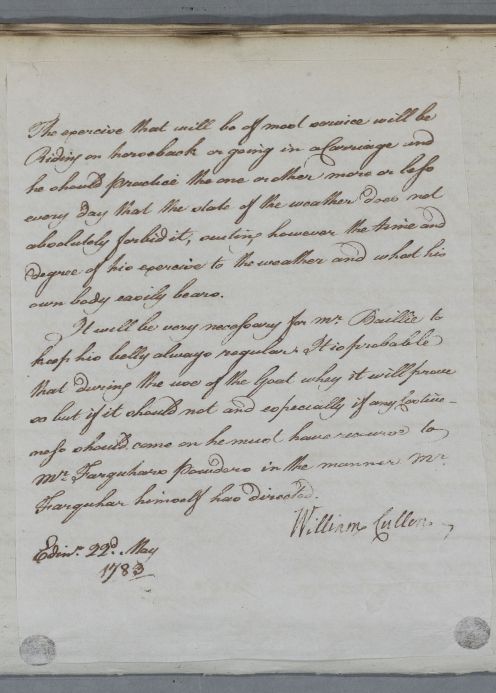 The exercise that will be of most service will be
Riding on horseback or going in a Carriage and
he should practice the one or other more or less
every day that the state of the weather does not
absolutely forbid it, suiting however the time and
degree of his exercise to the weather and what his
own body easily bears.
It will be very necessary for Mr. Baillie to
keep his belly always regular. It is probable
that during the use of the Goat whey it will prove
so but if it should not and especially if any Costive-
ness should come on he must have recourse to
Mr. Farquhars Powders in the manner Mr.
Farquhar himself has directed.
William Cullen
Edinr. 22d. May
1783